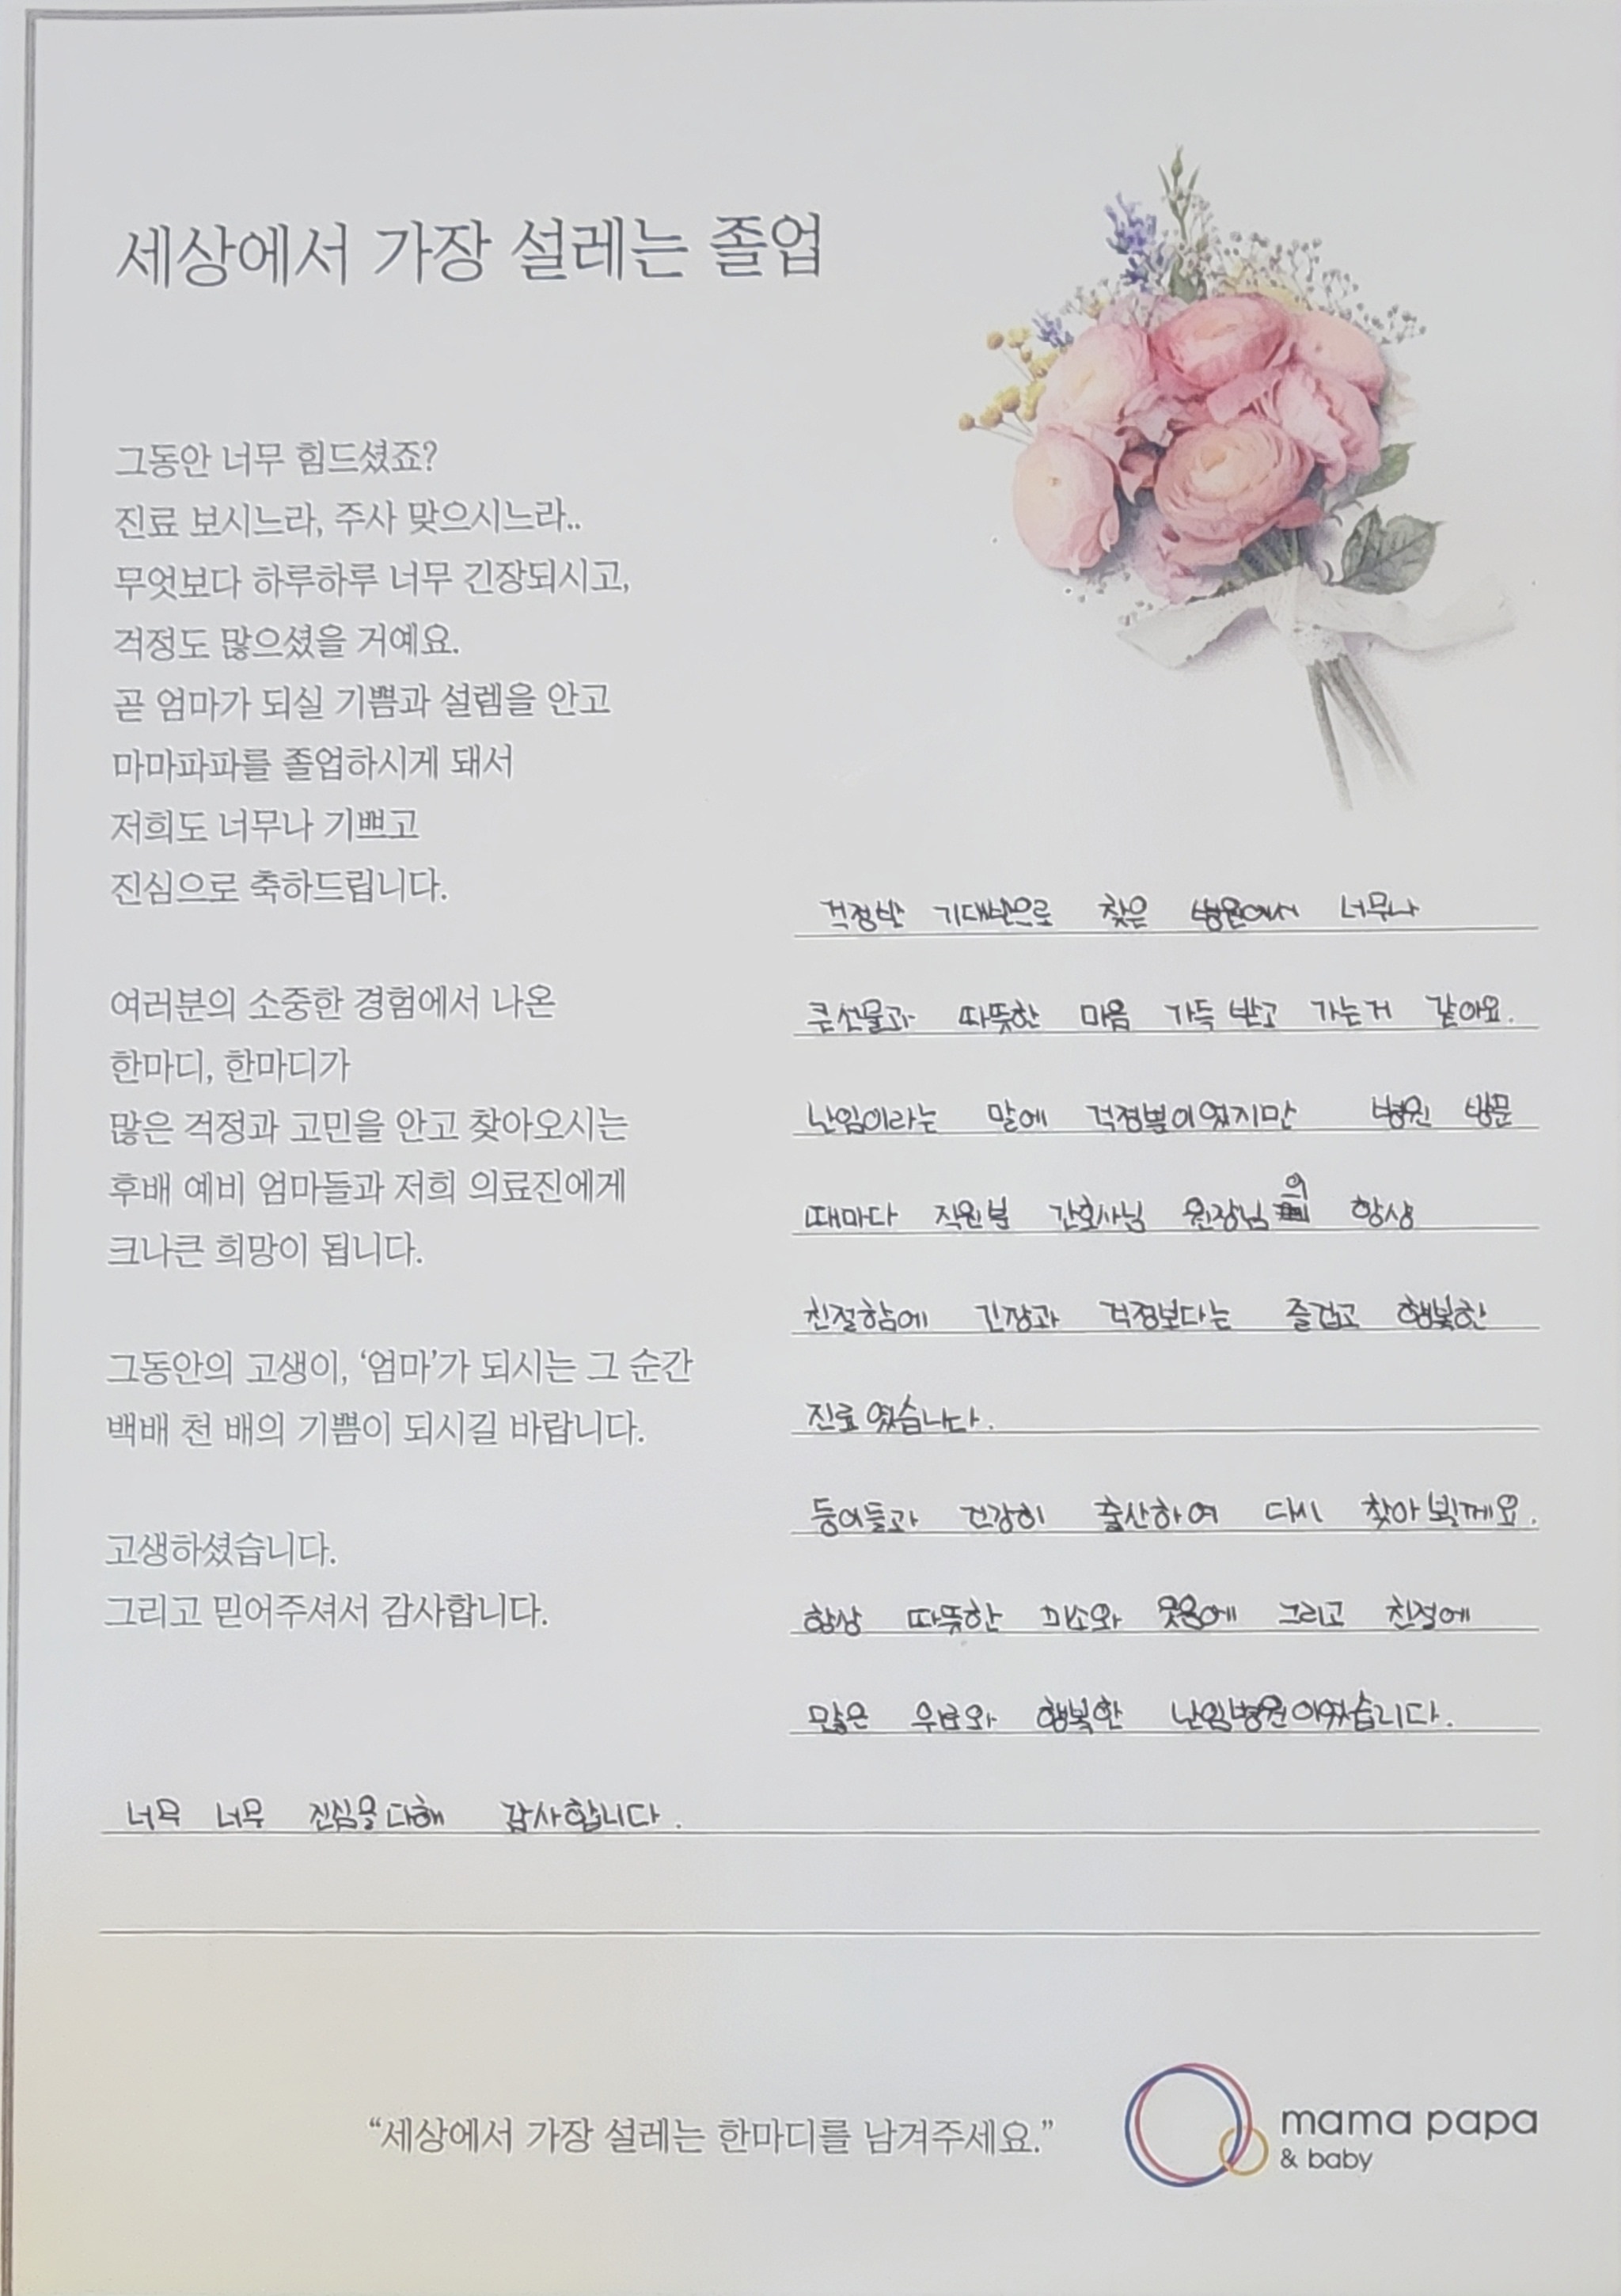 세상에서 가장 설레는 졸업
그동안 너무 힘드셨죠?
진료 보시느라, 주사 맞으시느라..
무엇보다 하루하루 너무 긴장되시고,
걱정도 많으셨을 거예요.
곧 엄마가 되실 기쁨과 설렘을 안고
마마파파를 졸업하시게 돼서
저희도 너무나 기쁘고
진심으로 축하드립니다.
여러분의 소중한 경험에서 나온
한마디, 한마디가
많은 걱정과 고민을 안고 찾아오시는
후배 예비 엄마들과 저희 의료진에게
크나큰 희망이 됩니다.
그동안의 고생이, ‘엄마’가 되시는 그 순간
백배 천 배의 기쁨이 되시길 바랍니다.
고생하셨습니다.
그리고 믿어주셔서 감사합니다.
걱정반 기대반으로 찾은 병원에서 너무나
큰선물과 따뜻한 마음 가득 받고 가는거 같아요.
난임이라는 말에 걱정뿐이였지만 병원 방문
때마다 직원분 간호사님 원장님의 항상
친절함에 긴장과 걱정보다는 즐겁고 행복한
진료였습니다.
둥이들과 건강히 출산하여 다시 찾아뵐께요.
항상 따뜻한 미소와 웃음에 그리고 친절에
많은 위로와 행복한 난임병원이였습니다.
너무 너무 진심을다해 감사합니다.
“세상에서 가장 설레는 한마디를 남겨주세요.”
mama papa
& baby